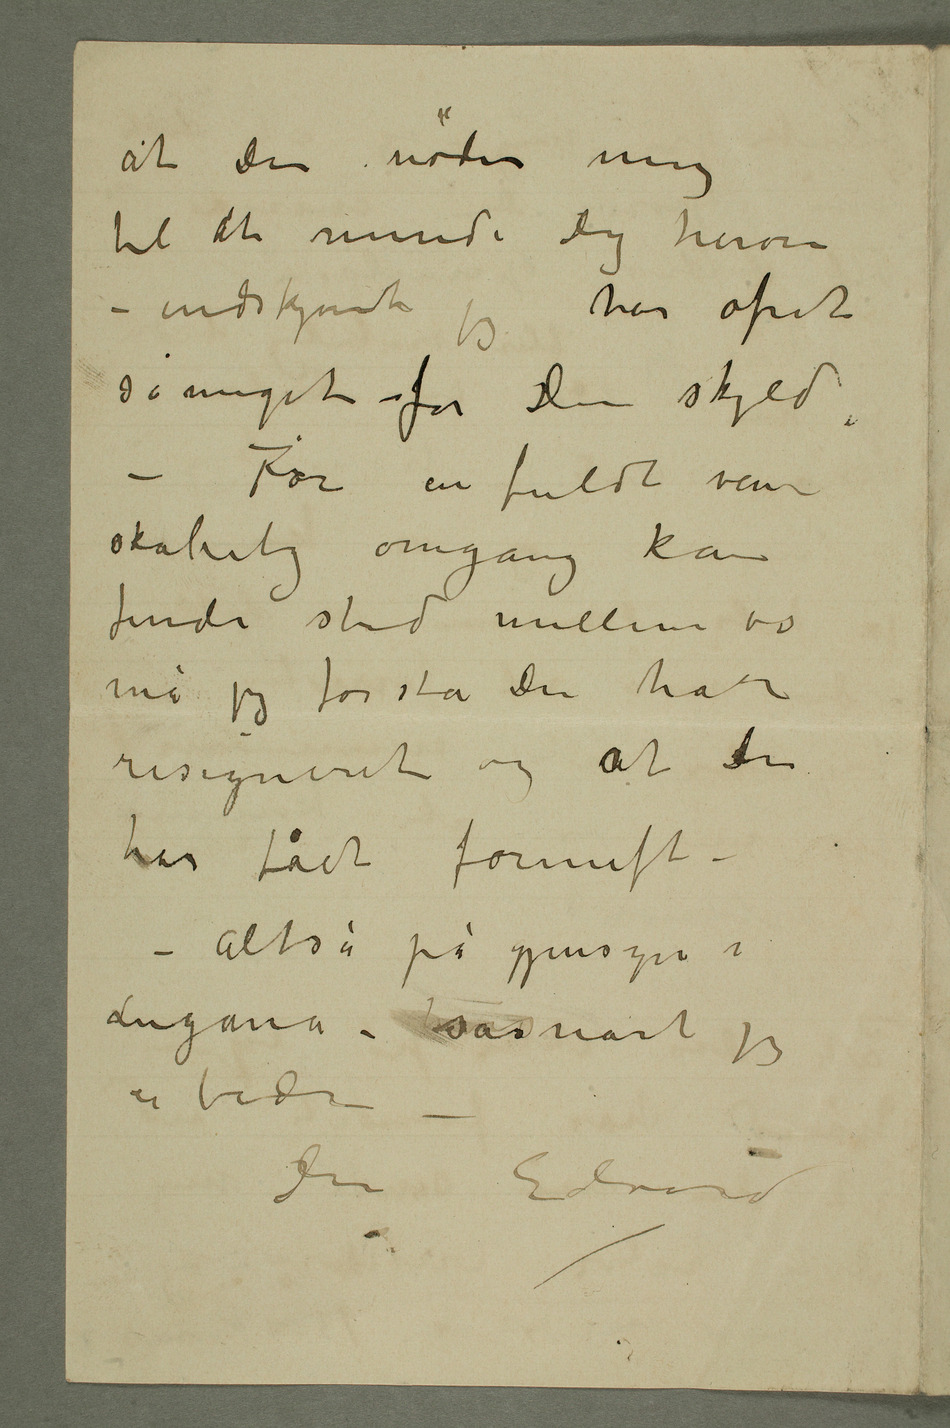 at du nöder mig
til at minde dig herom
– endskjønt jeg har ofret
så meget for din skyld.
– Før en fuldt ven
skabelig omgang kan
finde sted mellem os
må jeg forstå du har
resigneret og at du
har fået fornuft –
– altså på gjensyn i
Lugano – såsnart jeg
er bedre –
Din Edvard